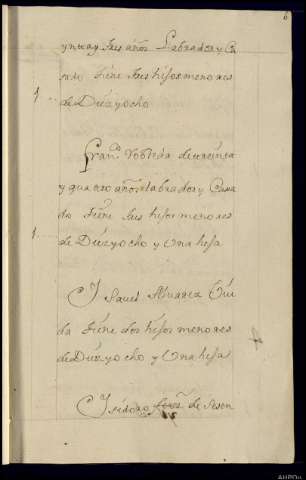 6
ynta y seis años Labrador y Ca
sado tiene seis hijos menores
de Diez y ocho
1
Fran.co Robleda de treinta
y quatro años labrador y Casa
do tiene seis hijos menores
de Diez y ocho y Una hija
1
Isavel Alvarez Viu
da tiene dos hijos menores
de Diez y ocho y Una hija
Isidoro de sesen
AHPOu